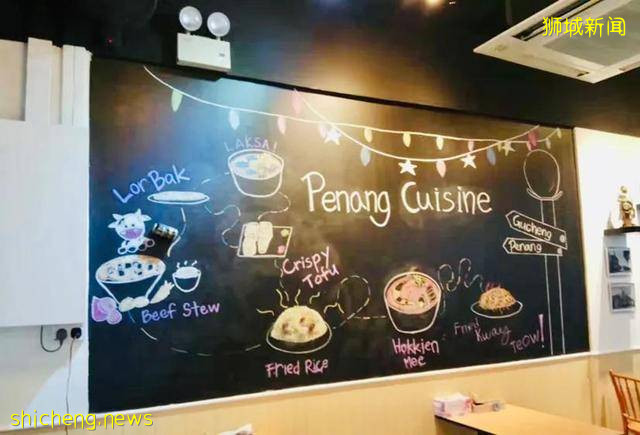 狮城新闻
LAKSA!
Lor Bak
Penang Cuisine
Gucheng
Penang
Crispy
Tofu
Beef Stew
Fried Rice
Hokkien
Mee
Fried
Kway
TeoW!
shicheng.news